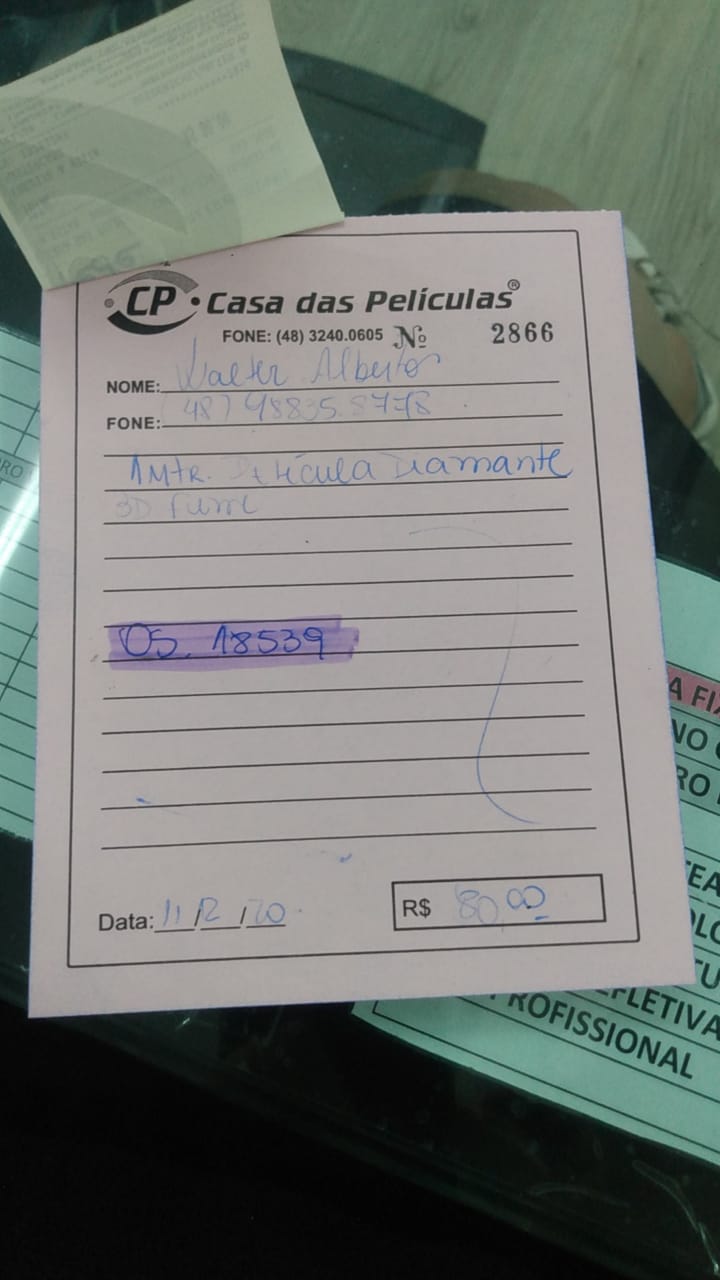 CP Casa das Películas®
FONE: (48) 3240.0605 Nº 2866
NOME: Walter Alberto
FONE: 48) 98835.8778
1 Mtr. Película Diamante
3D Fume
OS. 18539
Data: 11/12/20
R$ 80,00
RO
A FI
NO
RO
EA
OLO
TU
EFLETIVA
ROFISSIONAL